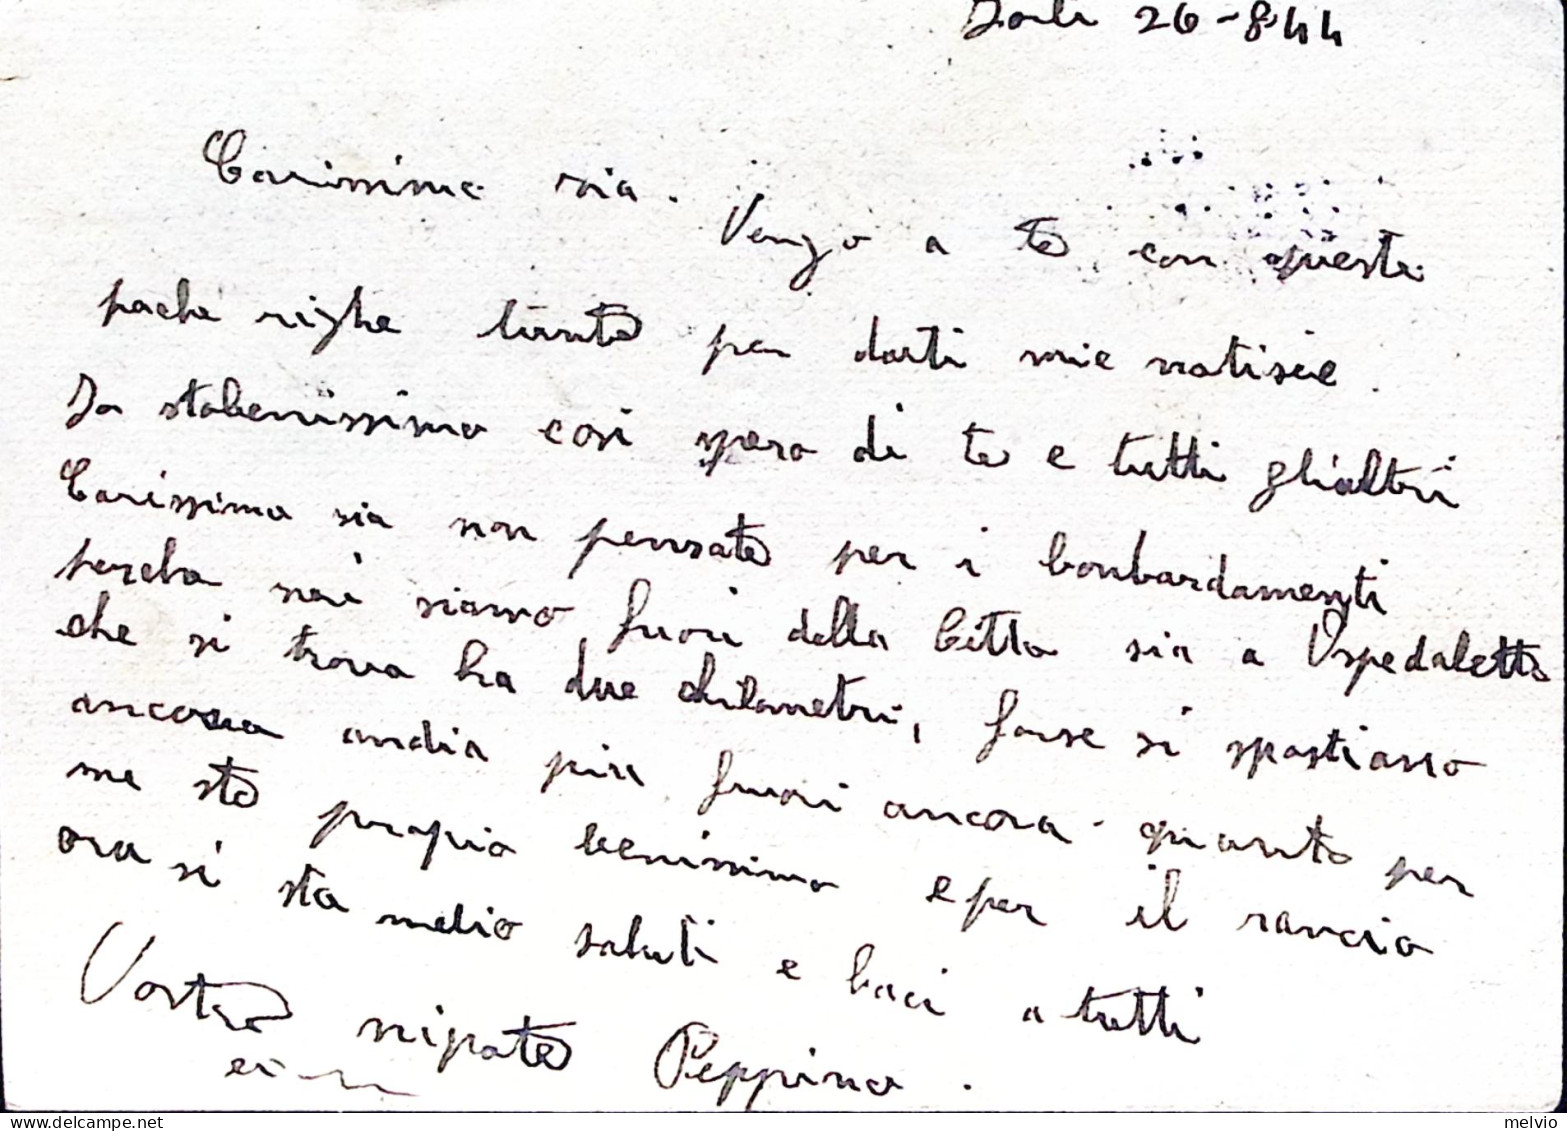 26-8-44
Carissima sia. Vengo a te con queste
poche righe tanto per darti mie notisie.
Io stobenissimo cosi spero di te e tutti glialtri
Carissima sia non pensate per i bonbardamenti
perche noi siamo fuori della Citta sia a Ospedaletto
che si trova ha due chilometri, forse si spostiamo
ancora andia piu fuori ancora. quanto per
me sto propio benissimo e per il rancio
ora si sta melio saluti e baci a tutti
Vostro nipote Peppino.
melvio